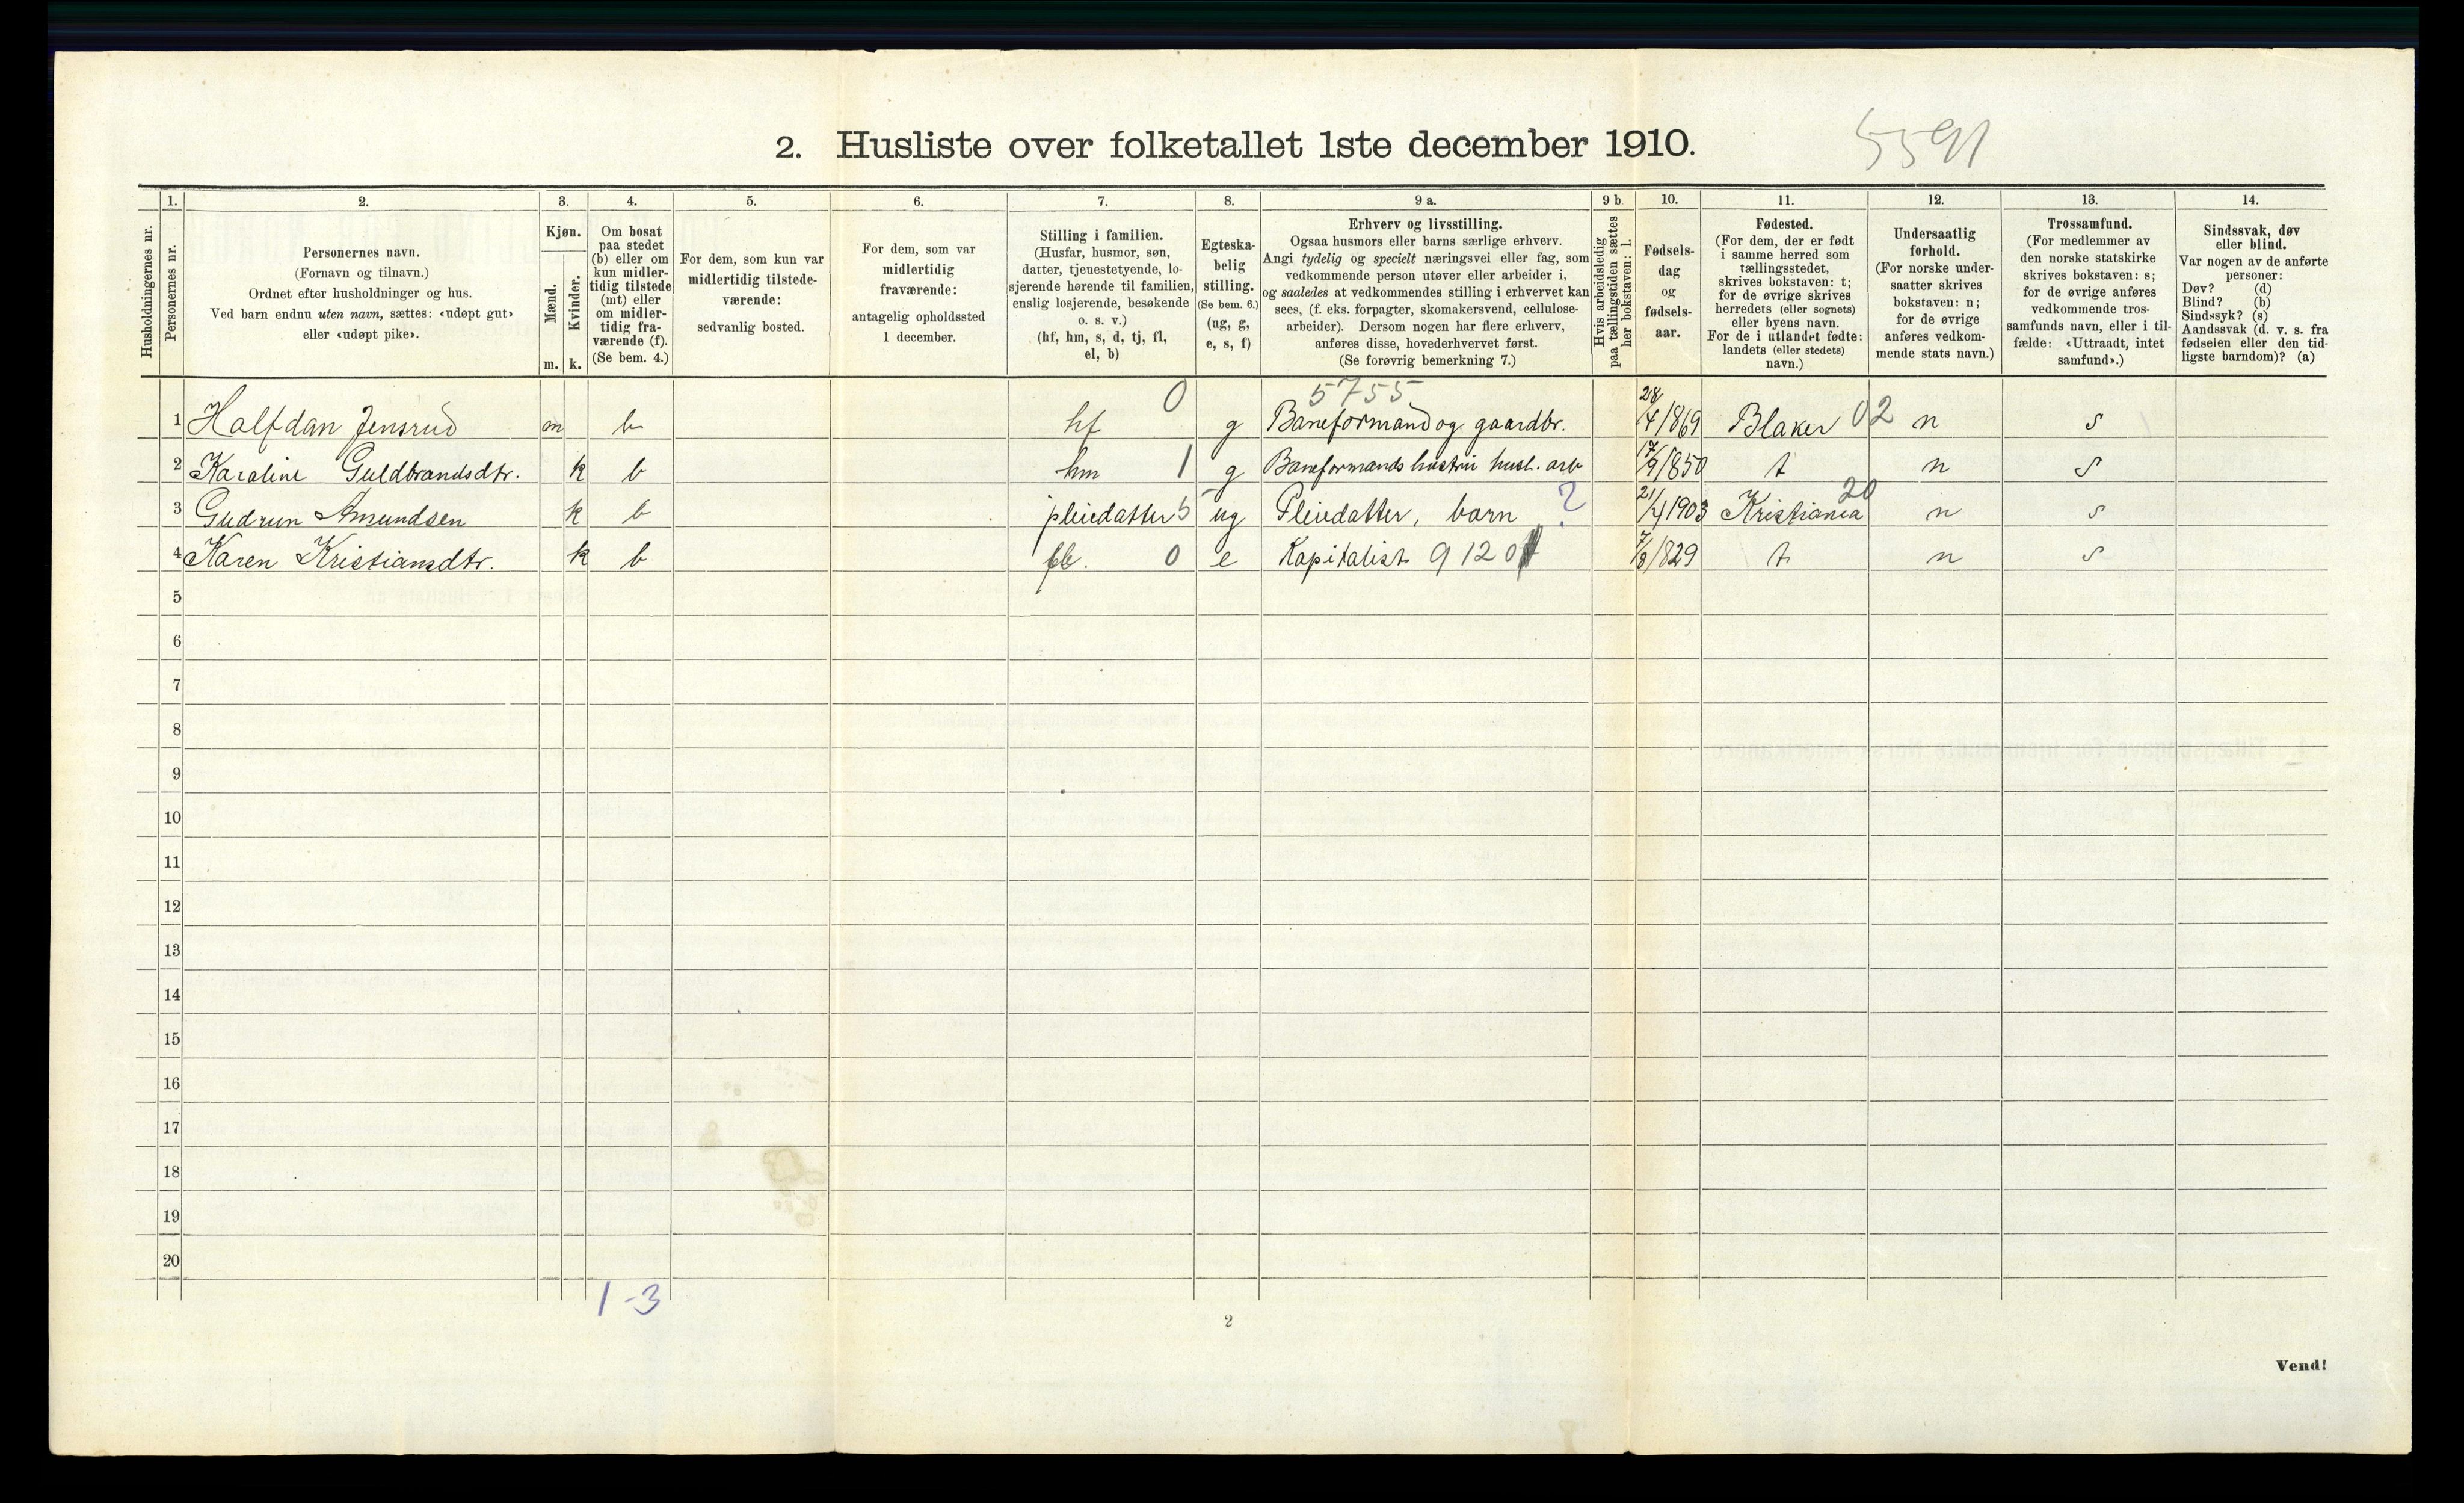 2. Husliste over folketallet 1ste december 1910.
5591
Husholdningernes nr.
1.
Personernes nr.
2.
Personernes navn.
(Fornavn og tilnavn.)
Ordnet efter husholdninger og hus.
Ved barn endnu uten navn, sættes: «udøpt gut»
eller «udøpt pike».
3.
Kjøn.
Mænd.
m.
Kvinder.
k.
4.
Om bosat
paa stedet
(b) eller om
kun midler-
tidig tilstede
(mt) eller
om midler-
tidig fra-
værende (f).
(Se bem. 4.)
5.
For dem, som kun var
midlertidig tilstede-
værende:
sedvanlig bosted.
6.
For dem, som var
midlertidig
fraværende:
antagelig opholdssted
1 december.
7.
Stilling i familien.
(Husfar, husmor, søn,
datter, tjenestetyende, lo-
sjerende hørende til familien,
enslig losjerende, besøkende
o. s. v.)
(hf, hm, s, d, tj, fl,
el, b)
8.
Egteska-
belig
stilling.
(Se bem. 6.)
(ug, g,
e, s, f)
9 a.
Erhverv og livsstilling.
Ogsaa husmors eller barns særlige erhverv.
Angi tydelig og specielt næringsvei eller fag, som
vedkommende person utøver eller arbeider i,
og saaledes at vedkommendes stilling i erhvervet kan
sees, (f. eks. forpagter, skomakersvend, cellulose-
arbeider). Dersom nogen har flere erhverv,
anføres disse, hovederhvervet først.
(Se forøvrig bemerkning 7.)
9 b.
Hvis arbeidsledig
paa tællingstiden sættes
her bokstaven: l.
10.
Fødsels-
dag
og
fødsels-
aar.
11.
Fødested.
(For dem, der er født
i samme herred som
tællingsstedet,
skrives bokstaven: t;
for de øvrige skrives
herredets (eller sognets)
eller byens navn.
For de i utlandet fødte:
landets (eller stedets)
navn.)
12.
Undersaatlig
forhold.
(For norske under-
saatter skrives
bokstaven: n;
for de øvrige
anføres vedkom-
mende stats navn.)
13.
Trossamfund.
(For medlemmer av
den norske statskirke
skrives bokstaven: s;
for de øvrige anføres
vedkommende tros-
samfunds navn, eller i til-
fælde: «Uttraadt, intet
samfund».)
14.
Sindssvak, døv
eller blind.
Var nogen av de anførte
personer:
Døv? (d)
Blind? (b)
Sindssyk? (s)
Aandssvak (d. v. s. fra
fødselen eller den tid-
ligste barndom)? (a)
5755
1 Halfdan Jensrud m b hf 0 g Baneformand og gaardbr. 28/4 1869 Blaker 02 n s
2 Karoline Guldbrandsdtr. k b hm 1 g Baneformands hustru husl. arb 17/9 1850 t n s
3 Gudrun Amundsen k b pleiedatter 5 ug Pleiedatter, barn ? 21/4 1903 Kristiania 20 n s
4 Karen Kristiansdtr. k b 0 e Kapitalist 9120 7/8 1829 t n s
5
6
7
8
9
10
11
12
13
14
15
16
17
18
19
20
1-3
2
Vend!